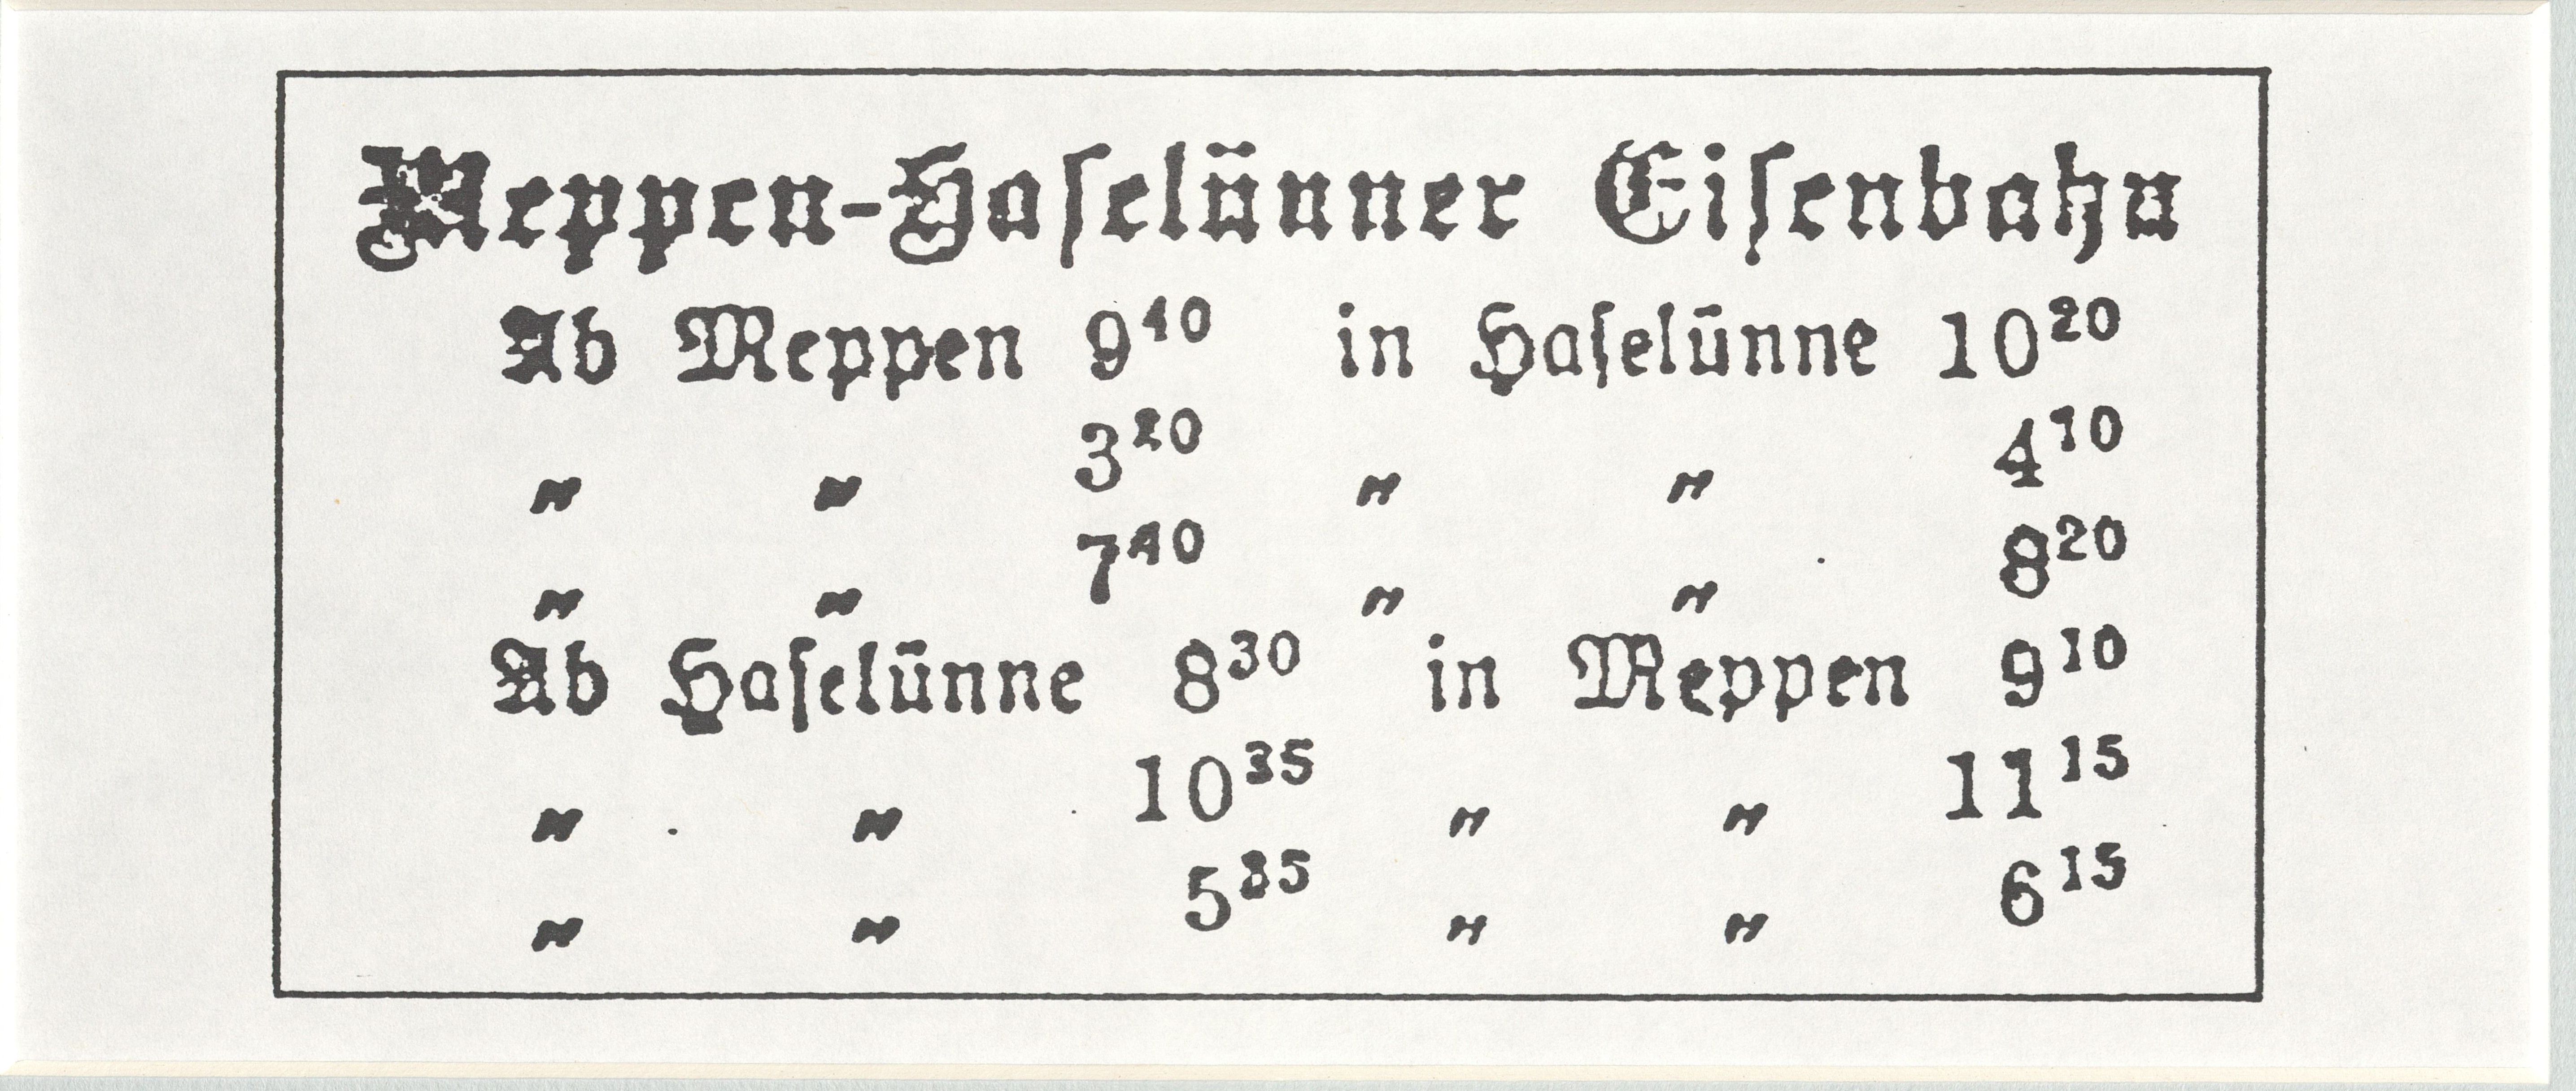 Meppen-Haselünner Eisenbahn
Ab Meppen 9⁴⁰ in Haselünne 10²⁰
„ „ 3²⁰ „ „ 4¹⁰
„ „ 7⁴⁰ „ „ 8²⁰
Ab Haselünne 8³⁰ in Meppen 9¹⁰
„ „ 10³⁵ „ „ 11¹⁵
„ „ 5³⁵ „ „ 6¹⁵